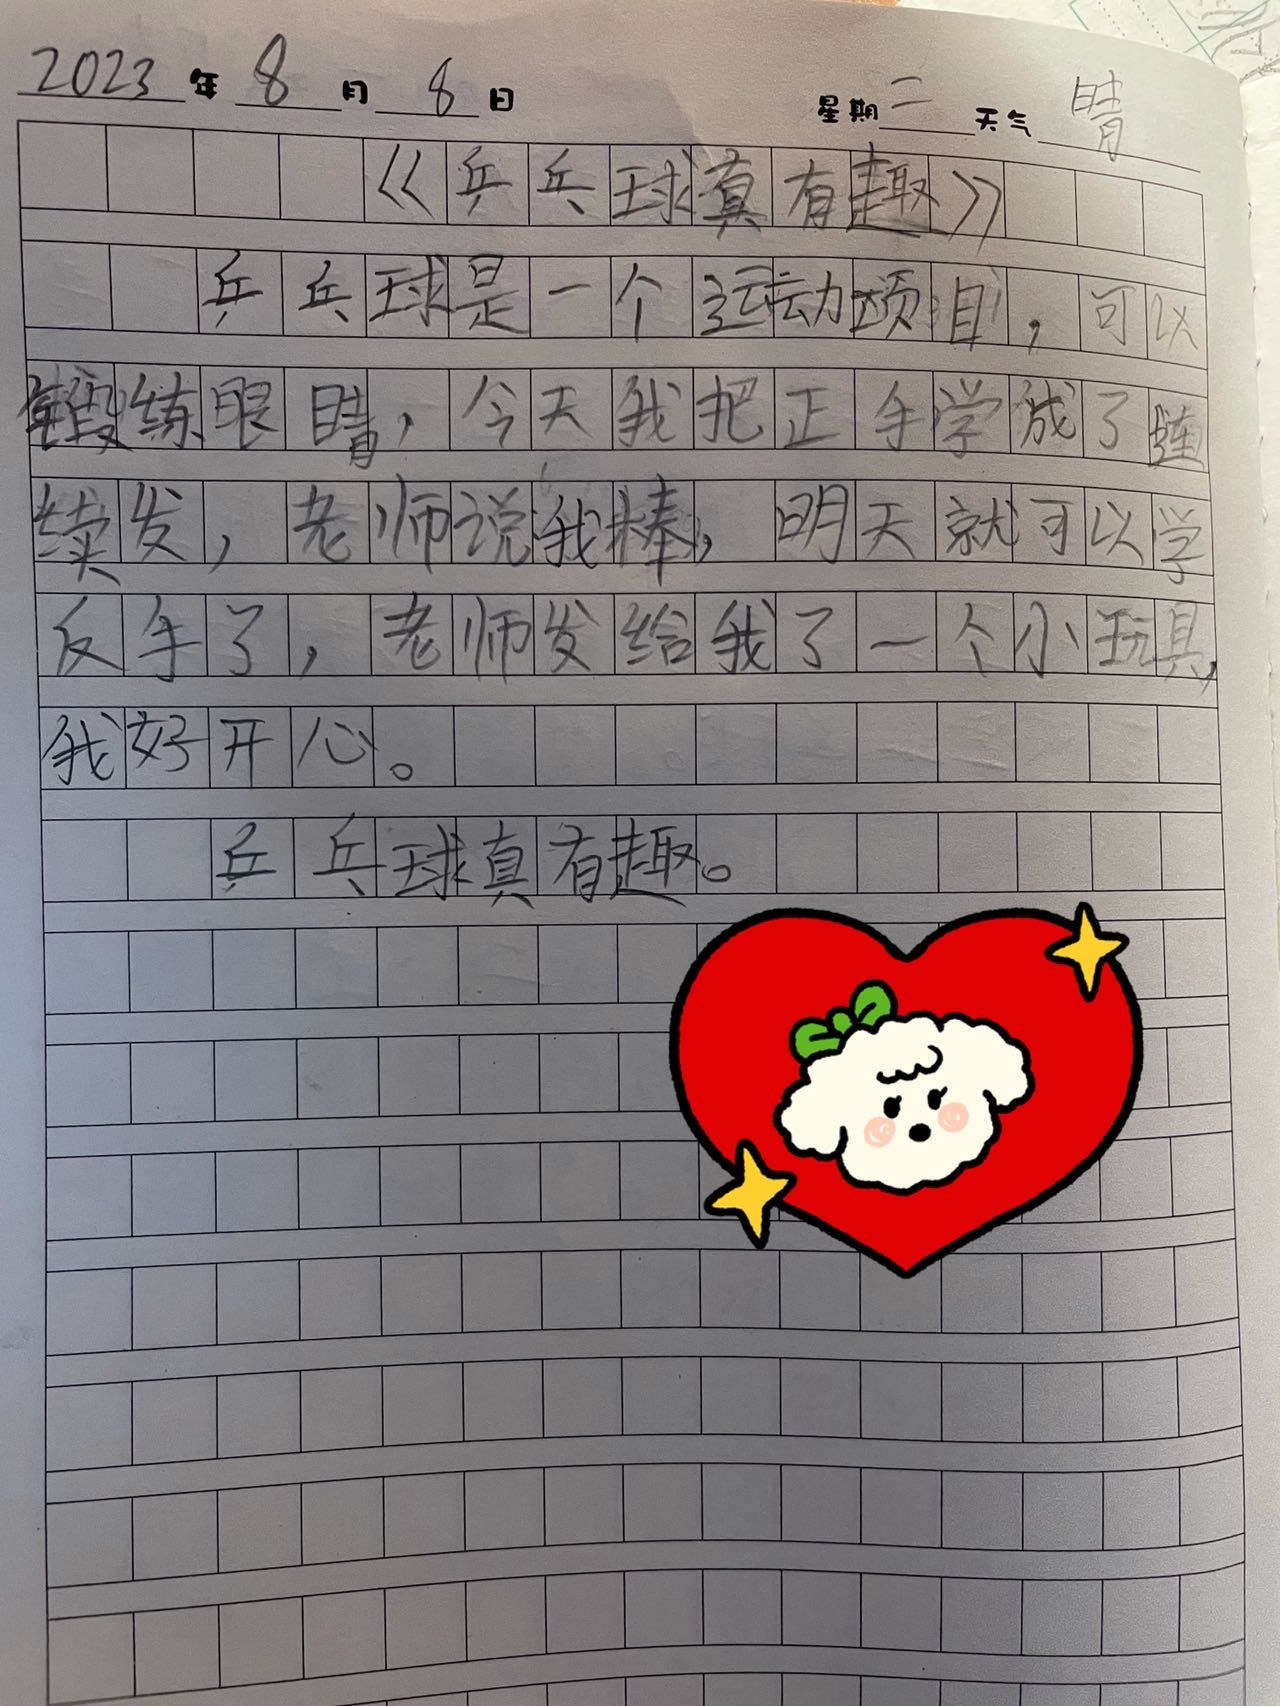 2023年8月8日 星期二 天气晴
《乒乓球真有趣》
乒乓球是一个运动项目,可以
锻练眼睛,今天我把正手学成了连
续发,老师说我棒,明天就可以学
反手了,老师发给我了一个小玩具,
我好开心。
乒乓球真有趣。